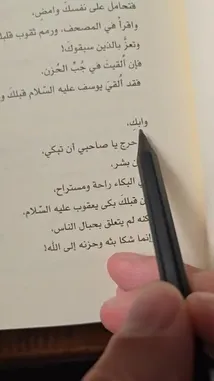 فتحامل على نفسك وامضِ،
واقرأ في المصحف، ورمم ثقوب قلبك
وتعزَّ بالذين سبقوك!
فإن أُلقيتَ في جُبِّ الحُزن،
فقد أُلقيَ يوسف عليه السَّلام قبلكَ و
وابكِ،
حرج يا صاحبي أن تبكي،
بشر،
البكاء راحة ومستراح،
قبلكَ بكى يعقوب عليه السَّلام،
كنه لم يتعلق بحبال الناس،
إنما شكا بثه وحزنه إلى الله!